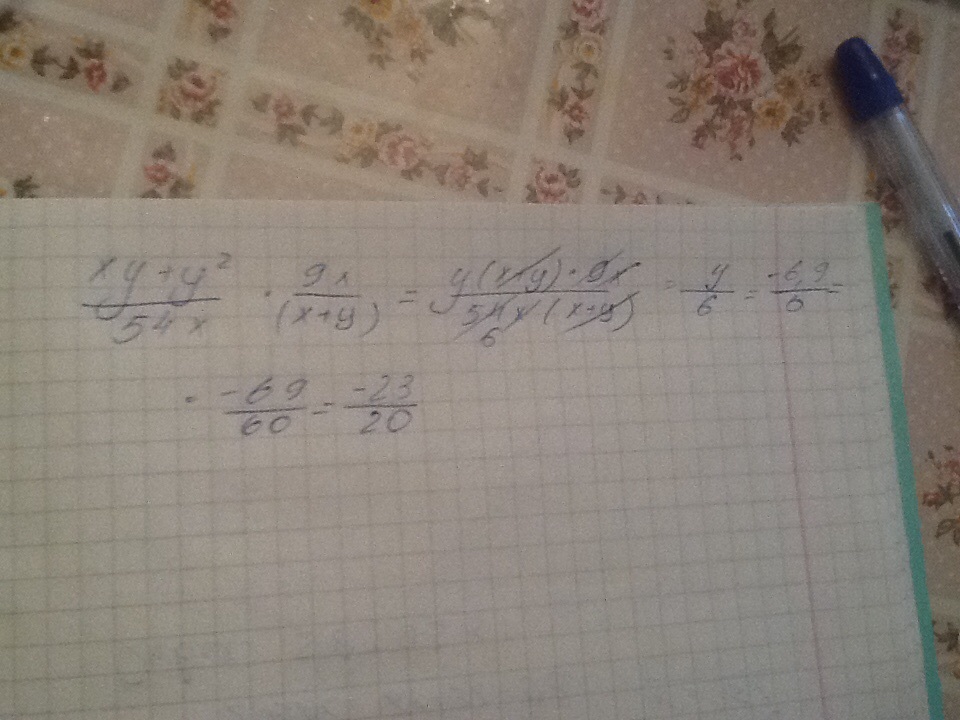 (xy+y²)/(54x) · (9x)/((x+y)) = (y(x+y)·9x)/(54x(x+y)) 6 = y/6 = (-6,9)/6 =
= (-69)/(60) = (-23)/(20)